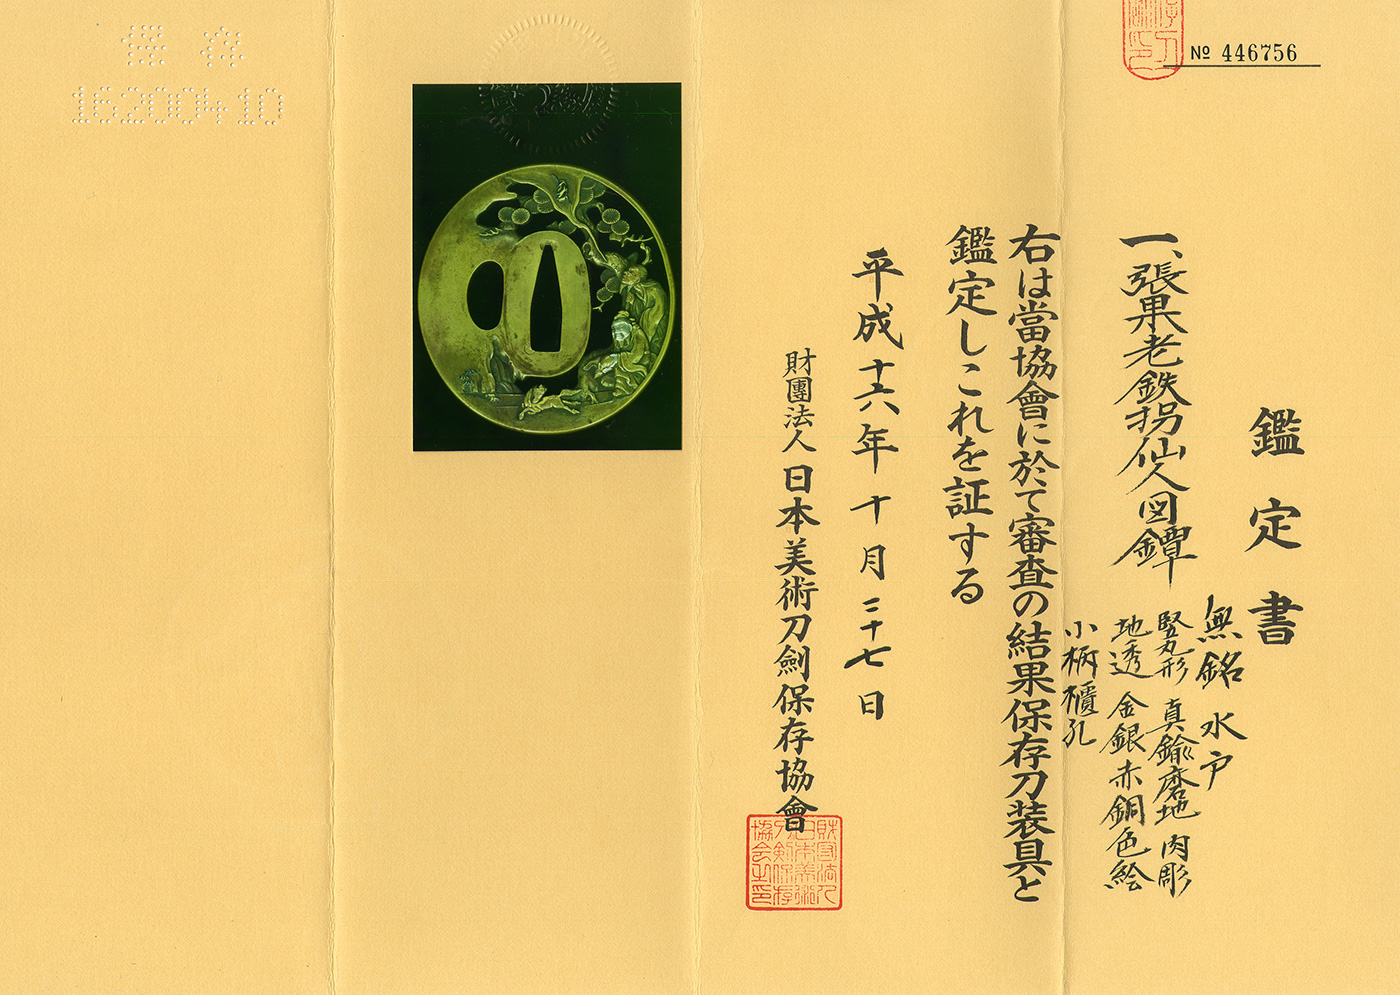 No 446756
鑑定書
一、張果老鉄拐仙人図鐔
無銘 水戸
竪丸形 真鍮磨地 肉彫
地透 金銀赤銅色絵
小柄櫃孔
右は當協會に於て審査の結果保存刀装具と
鑑定しこれを証する
平成十六年十月二十七日
財團法人日本美術刀劍保存協會
保存
16200410